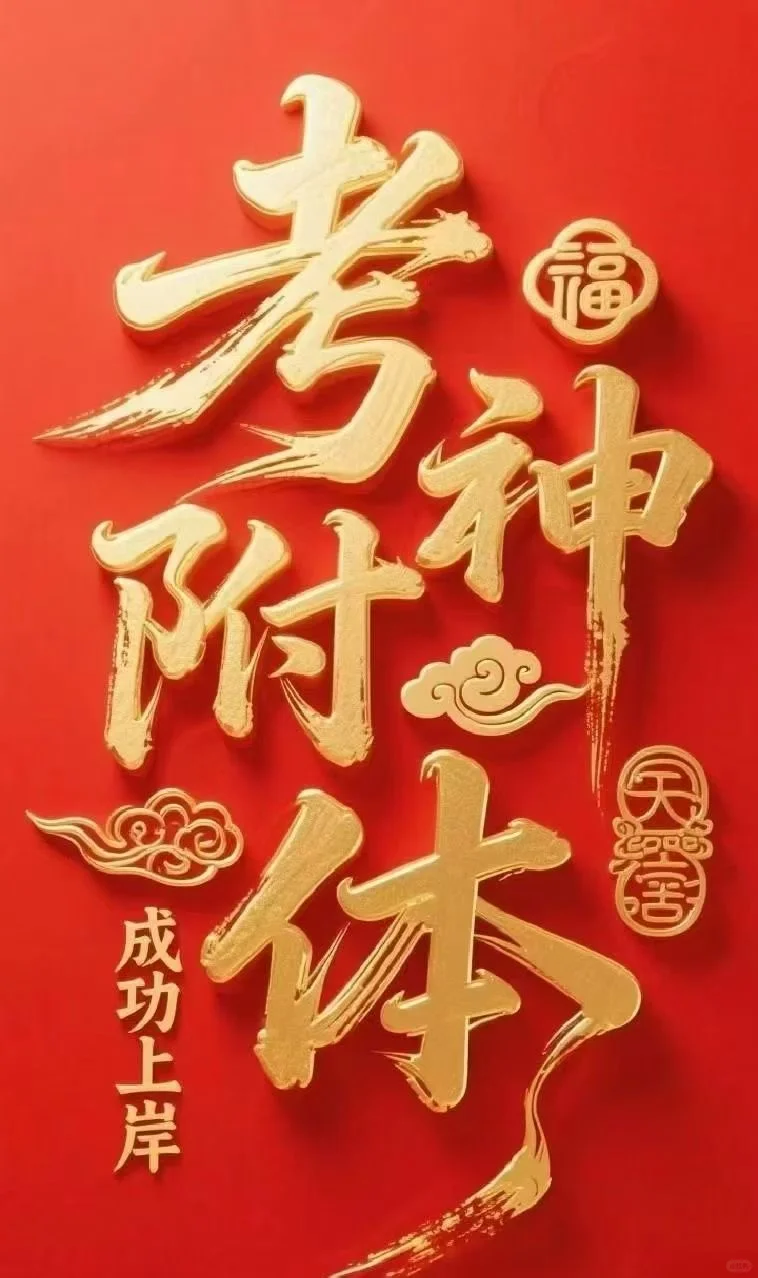 考神
附体
福
成功上岸